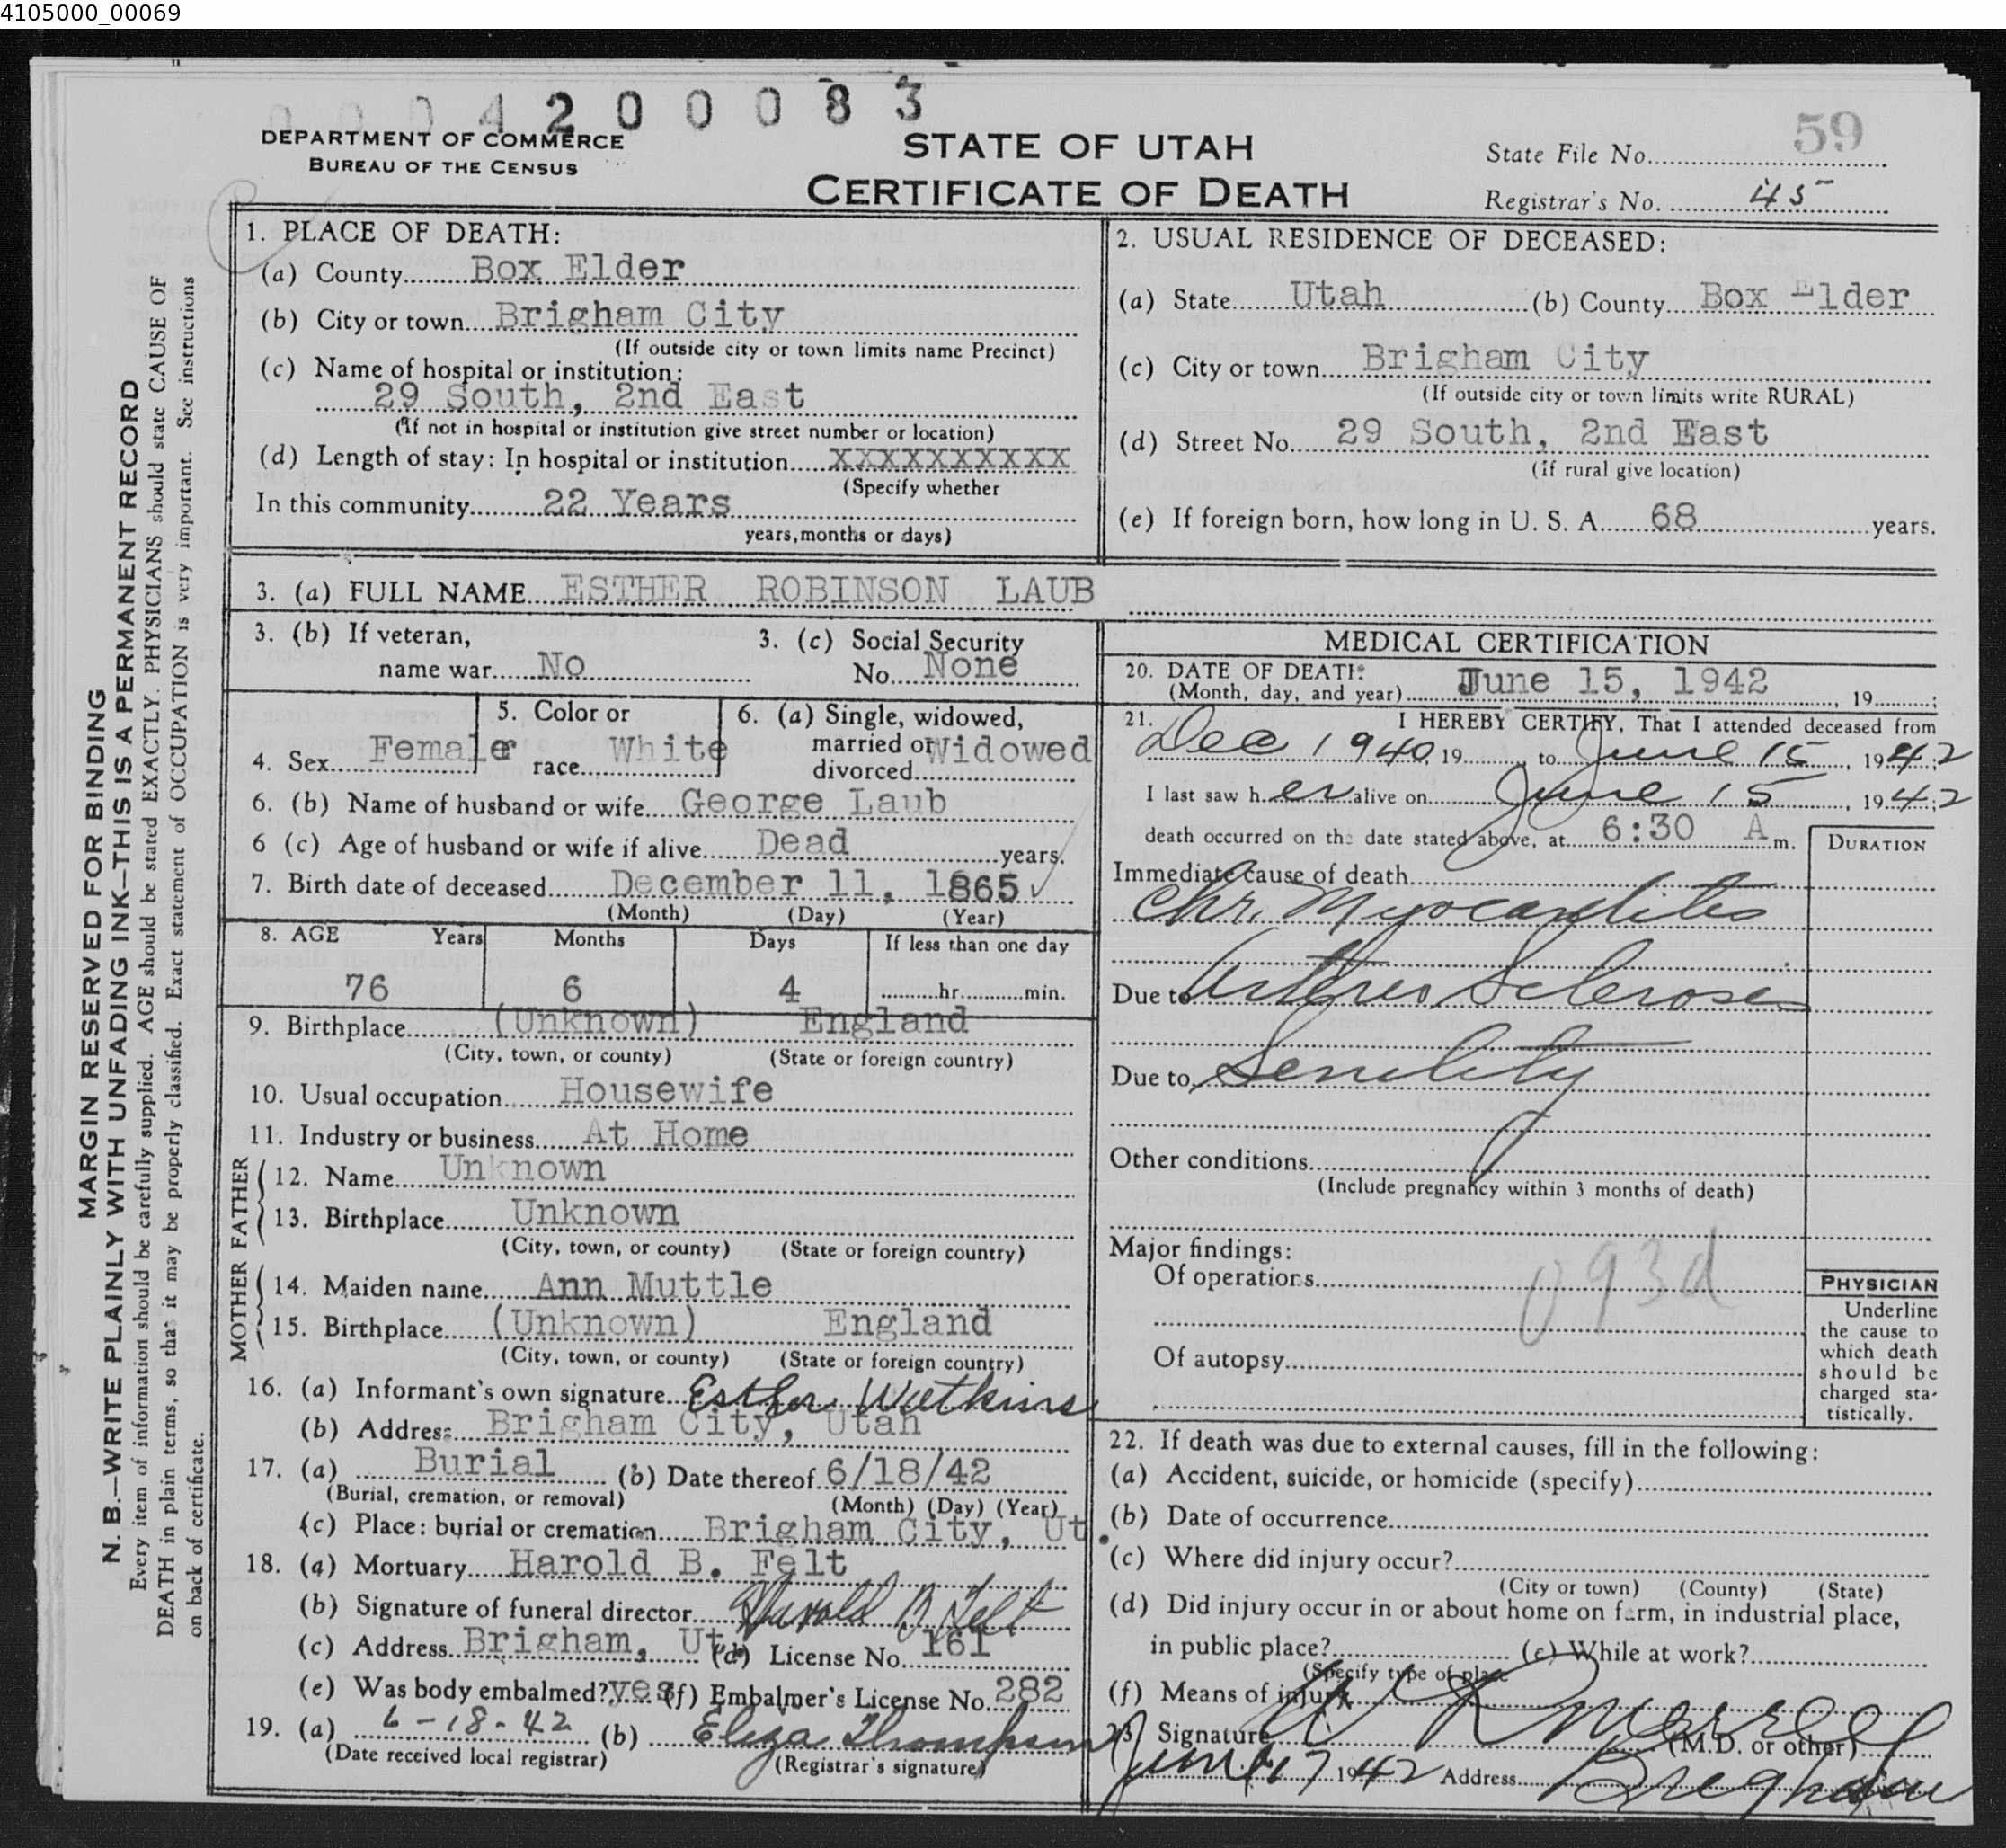 4105000_00069
0004200083
DEPARTMENT OF COMMERCE
BUREAU OF THE CENSUS
STATE OF UTAH
CERTIFICATE OF DEATH
State File No. 59
Registrar's No. 45
1. PLACE OF DEATH:
(a) County Box Elder
(b) City or town Brigham City
(If outside city or town limits name Precinct)
(c) Name of hospital or institution:
29 South, 2nd East
(If not in hospital or institution give street number or location)
(d) Length of stay: In hospital or institution XXXXXXXXXX
(Specify whether
In this community 22 Years
years, months or days)
2. USUAL RESIDENCE OF DECEASED:
(a) State Utah (b) County Box Elder
(c) City or town Brigham City
(If outside city or town limits write RURAL)
(d) Street No. 29 South, 2nd East
(If rural give location)
(e) If foreign born, how long in U. S. A. 68 years.
3. (a) FULL NAME ESTHER ROBINSON LAUB
3. (b) If veteran,
name war No
3. (c) Social Security
No. None
4. Sex Female
5. Color or
race White
6. (a) Single, widowed,
married or Widowed
divorced
6. (b) Name of husband or wife George Laub
6 (c) Age of husband or wife if alive Dead years.
7. Birth date of deceased December 11, 1865 ✓
(Month) (Day) (Year)
8. AGE Years Months Days If less than one day
76 6 4 hr. min.
9. Birthplace (Unknown) England
(City, town, or county) (State or foreign country)
10. Usual occupation Housewife
11. Industry or business At Home
FATHER
12. Name Unknown
13. Birthplace Unknown
(City, town, or county) (State or foreign country)
MOTHER
14. Maiden name Ann Muttle
15. Birthplace (Unknown) England
(City, town, or county) (State or foreign country)
16. (a) Informant's own signature Esther Watkins
(b) Address Brigham City, Utah
17. (a) Burial (b) Date thereof 6/18/42
(Burial, cremation, or removal) (Month) (Day) (Year)
(c) Place: burial or cremation Brigham City, Ut.
18. (a) Mortuary Harold B. Felt
(b) Signature of funeral director Harold B Felt
(c) Address Brigham, Ut. (d) License No. 161
(e) Was body embalmed? yes (f) Embalmer's License No. 282
19. (a) 6-18-42 (b) Eliza Thompson
(Date received local registrar) (Registrar's signature)
MEDICAL CERTIFICATION
20. DATE OF DEATH:
(Month, day, and year) June 15, 1942, 19 ;
21. I HEREBY CERTIFY, That I attended deceased from
Dec 1940, 19 , to June 15, 1942;
I last saw her alive on June 15, 1942;
death occurred on the date stated above, at 6:30 A m.
DURATION
Immediate cause of death
Chr. Myocarditis
Due to Arthrio Scleroses
Due to Senility
Other conditions
(Include pregnancy within 3 months of death)
Major findings:
Of operations
093d
Of autopsy
PHYSICIAN
Underline
the cause to
which death
should be
charged sta-
tistically.
22. If death was due to external causes, fill in the following:
(a) Accident, suicide, or homicide (specify)
(b) Date of occurrence
(c) Where did injury occur?
(City or town) (County) (State)
(d) Did injury occur in or about home on farm, in industrial place,
in public place? (e) While at work?
(Specify type of place
(f) Means of injury
23. Signature W R Merrell
(M.D. or other)
June 17, 1942 Address Brigham
MARGIN RESERVED FOR BINDING
N. B.—WRITE PLAINLY WITH UNFADING INK—THIS IS A PERMANENT RECORD
Every item of information should be carefully supplied. AGE should be stated EXACTLY. PHYSICIANS should state CAUSE OF
DEATH in plain terms, so that it may be properly classified. Exact statement of OCCUPATION is very important. See instructions
on back of certificate.